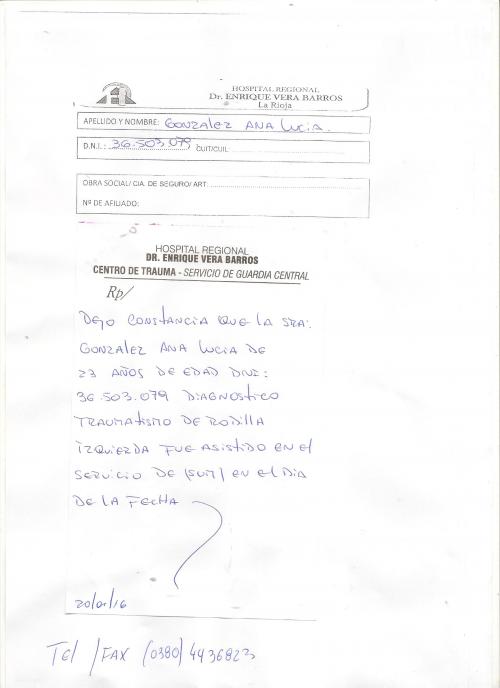 HOSPITAL REGIONAL
Dr. ENRIQUE VERA BARROS
La Rioja
APELLIDO Y NOMBRE: GONZALEZ ANA LUCIA.
D.N.I.: 36.503.079 CUIT/CUIL:
OBRA SOCIAL/ CIA. DE SEGURO/ ART:
Nº DE AFILIADO:
HOSPITAL REGIONAL
DR. ENRIQUE VERA BARROS
CENTRO DE TRAUMA - SERVICIO DE GUARDIA CENTRAL
Rp/
DEJO CONSTANCIA QUE LA SRA:
GONZALEZ ANA LUCIA DE
23 AÑOS DE EDAD DNI:
36.503.079 DIAGNOSTICO
TRAUMATISMO DE RODILLA
IZQUIERDA FUE ASISTIDO EN EL
SERVICIO DE /SUM/ EN EL DIA
DE LA FECHA
Tel /FAX (0380) 4436823